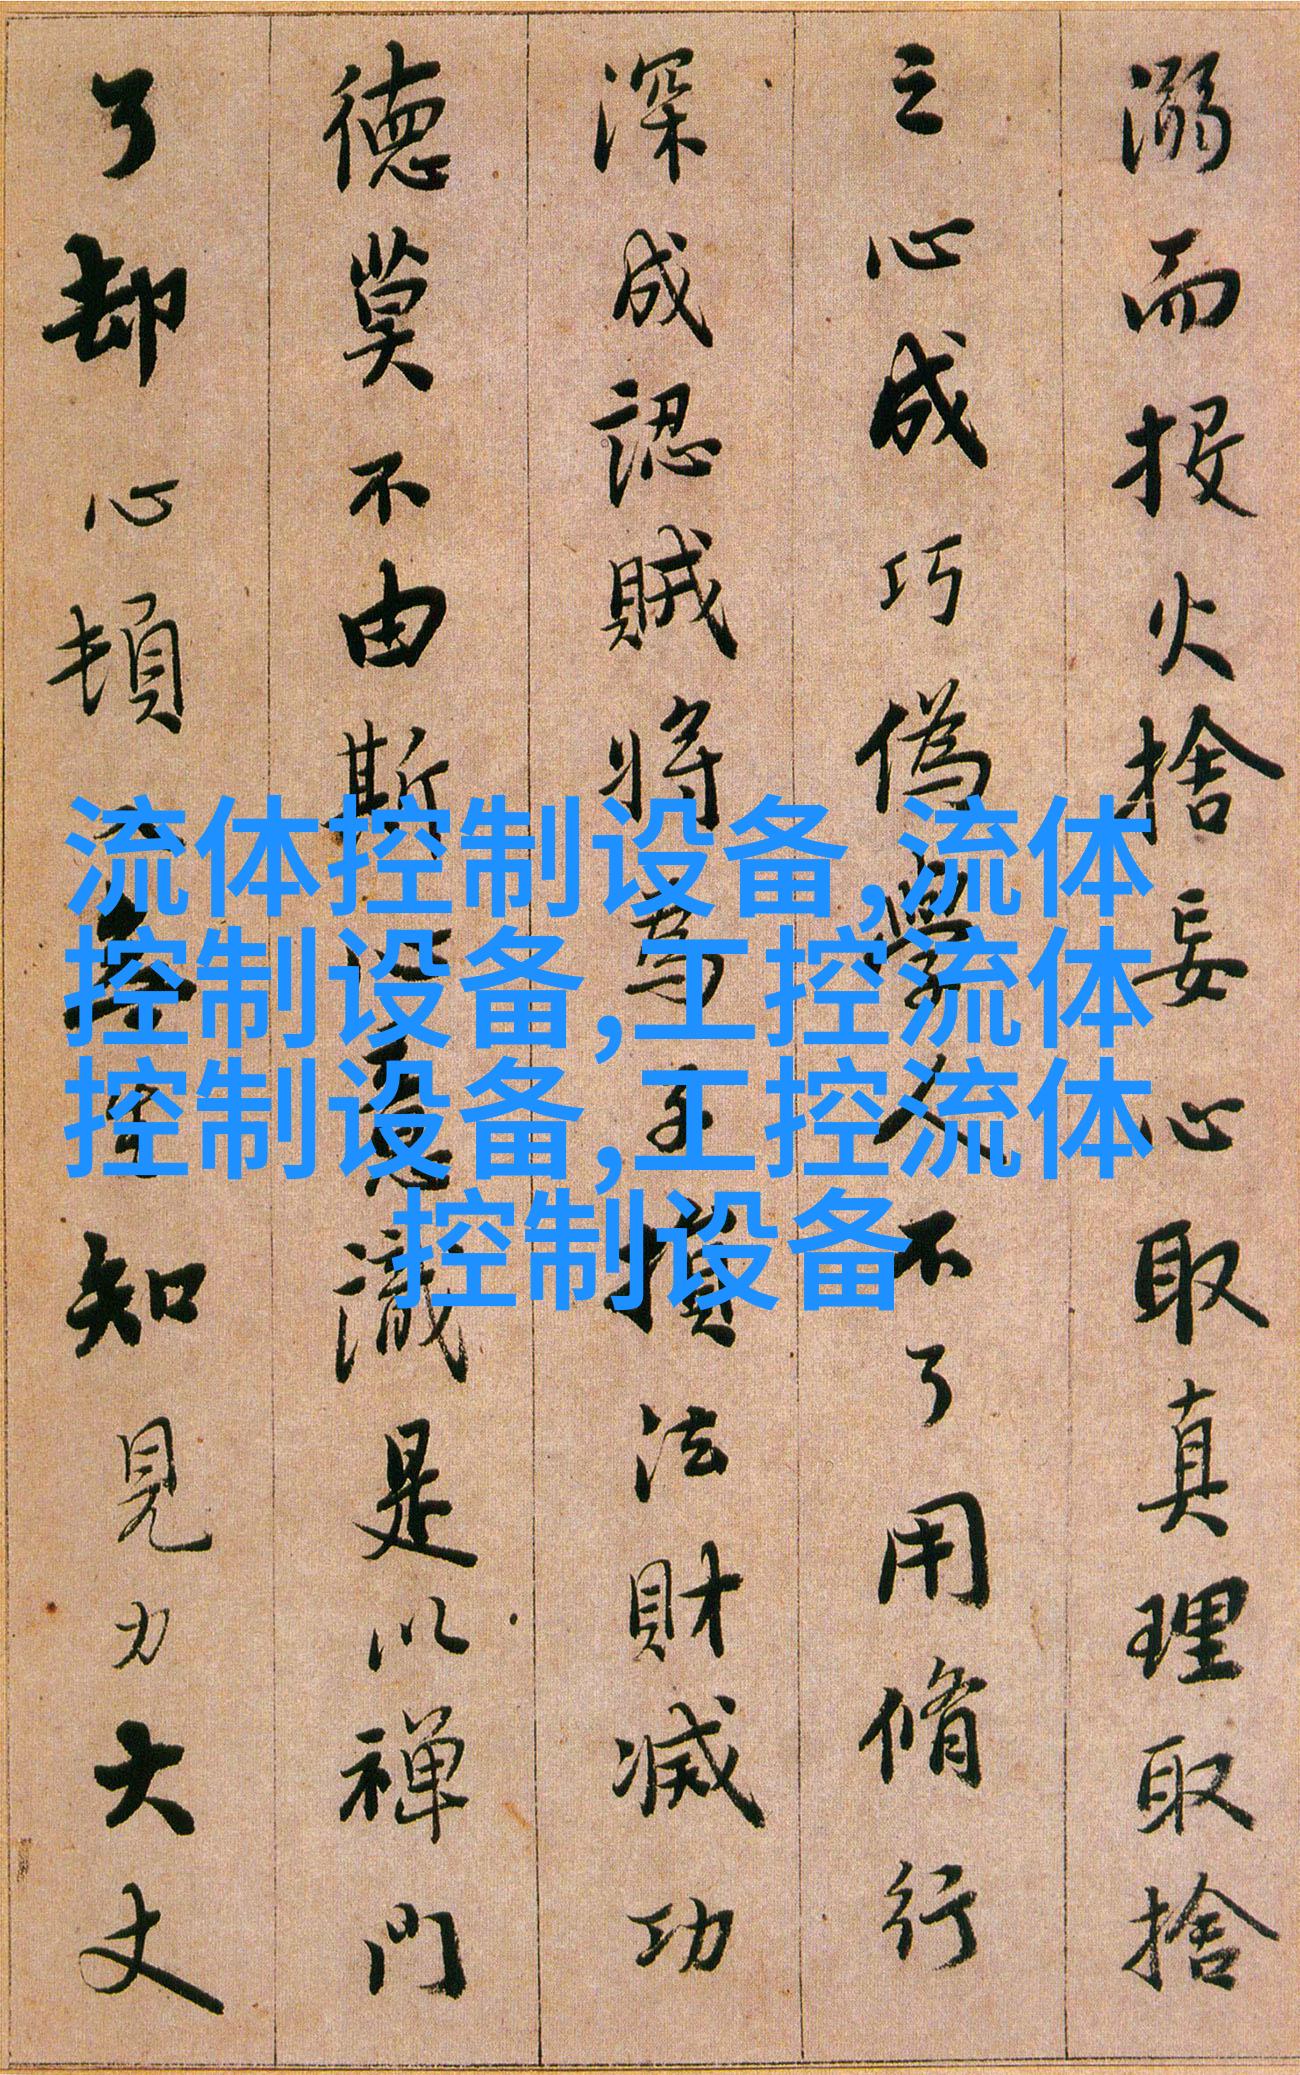 溺而投火捨妄心取真理取捨
之心成巧偽學人不了用脩行
深成認賊將為主損法財滅功
德莫不由斯心意識是以禪門
了却心頓入無生知見力大丈
流体控制设备,流体
控制设备,工控流体
控制设备,工控流体
控制设备